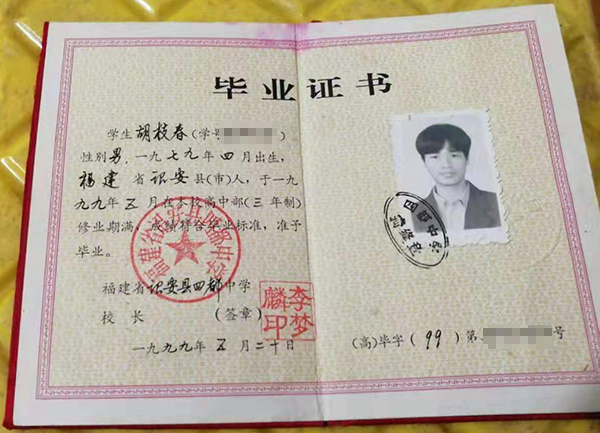 毕业证书
学生胡枝春(学号 ).
性别男.一九七九年四月出生,
福建省诏安县(市)人,于一九
九九年五月在本校高中部(三年制)
修业期满,成绩符合毕业标准,准予
毕业。
福建省诏安县四都中学
校长 (签章)
李梦麟印
一九九九年五月二十日
四都中学
(高)毕字(99)第 号